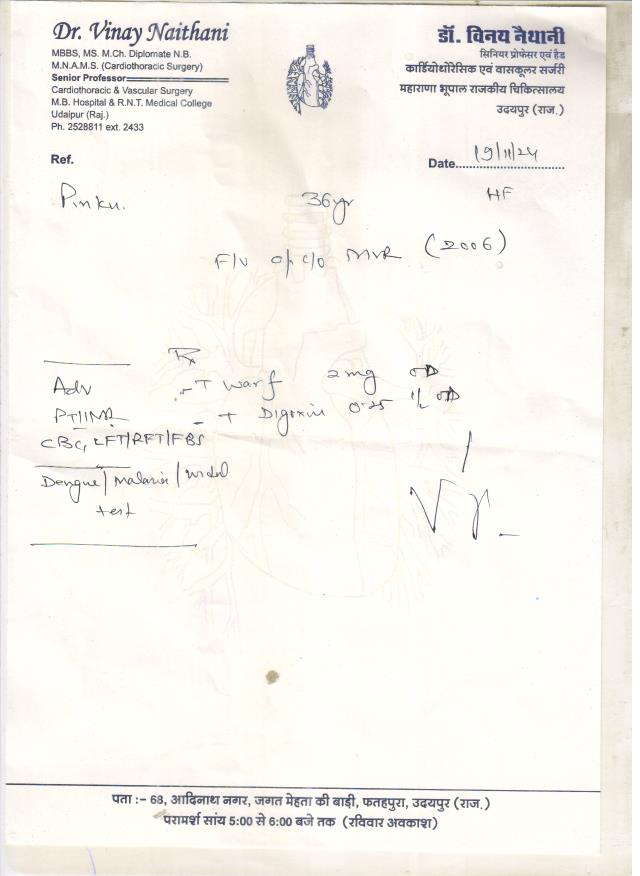 Dr. Vinay Naithani
MBBS, MS. M.Ch. Diplomate N.B.
M.N.A.M.S. (Cardiothoracic Surgery)
Senior Professor
Cardiothoracic & Vascular Surgery
M.B. Hospital & R.N.T. Medical College
Udaipur (Raj.)
Ph. 2528811 ext. 2433
डॉ. विनय नैथानी
सिनियर प्रोफेसर एवं हैड
कार्डियोथोरेसिक एवं वासकूलर सर्जरी
महाराणा भूपाल राजकीय चिकित्सालय
उदयपुर (राज.)
Ref.
Date 19/11/24
Pinku. 36yr HF
F/U o/c/o MVR (2006)
Rx
Adv - T Warf 2 mg OD
PT/INR - T Digoxin 0.25 1/2 OD
CBC, LFT/RFT/FBS
Dengue/Malaria/Widal
test
पता :- 68, आदिनाथ नगर, जगत मेहता की बाड़ी, फतहपुरा, उदयपुर (राज.)
परामर्श सांय 5:00 से 6:00 बजे तक (रविवार अवकाश)